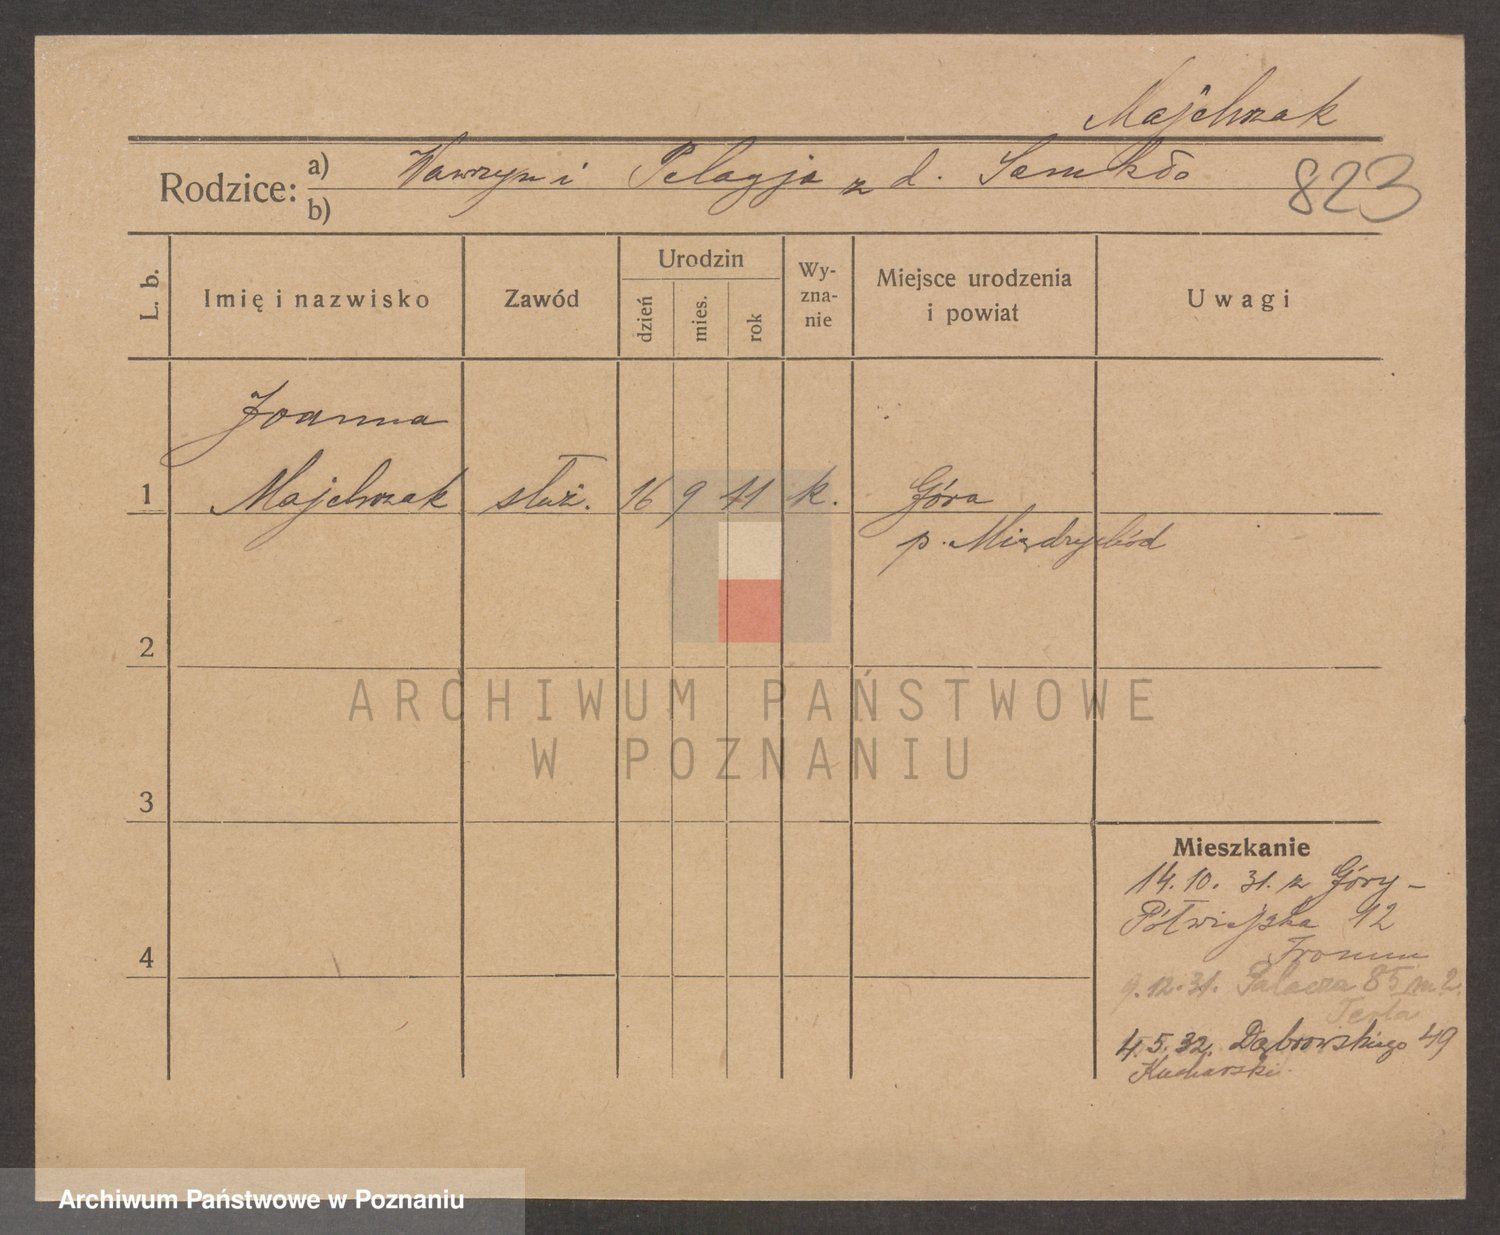 Majchrzak
Rodzice: a) Wawrzyn i Pelagja z d.
b)
823
L. b.
Imię i nazwisko
Zawód
Urodzin
dzień
mies.
rok
Wy-
zna-
nie
Miejsce urodzenia
i powiat
Uwagi
Joanna
1 Majchrzak służ. 16 9 11 k. Góra
p. Międzychód
2
ARCHIWUM PAŃSTWOWE
W POZNANIU
3
Mieszkanie
14.10. 31. z Góry –
Półwiejska 12
4
9.12.31. Palacza 85 m 2.
4.5.32. Dąbrowskiego 49
Kucharski.
Archiwum Państwowe w Poznaniu